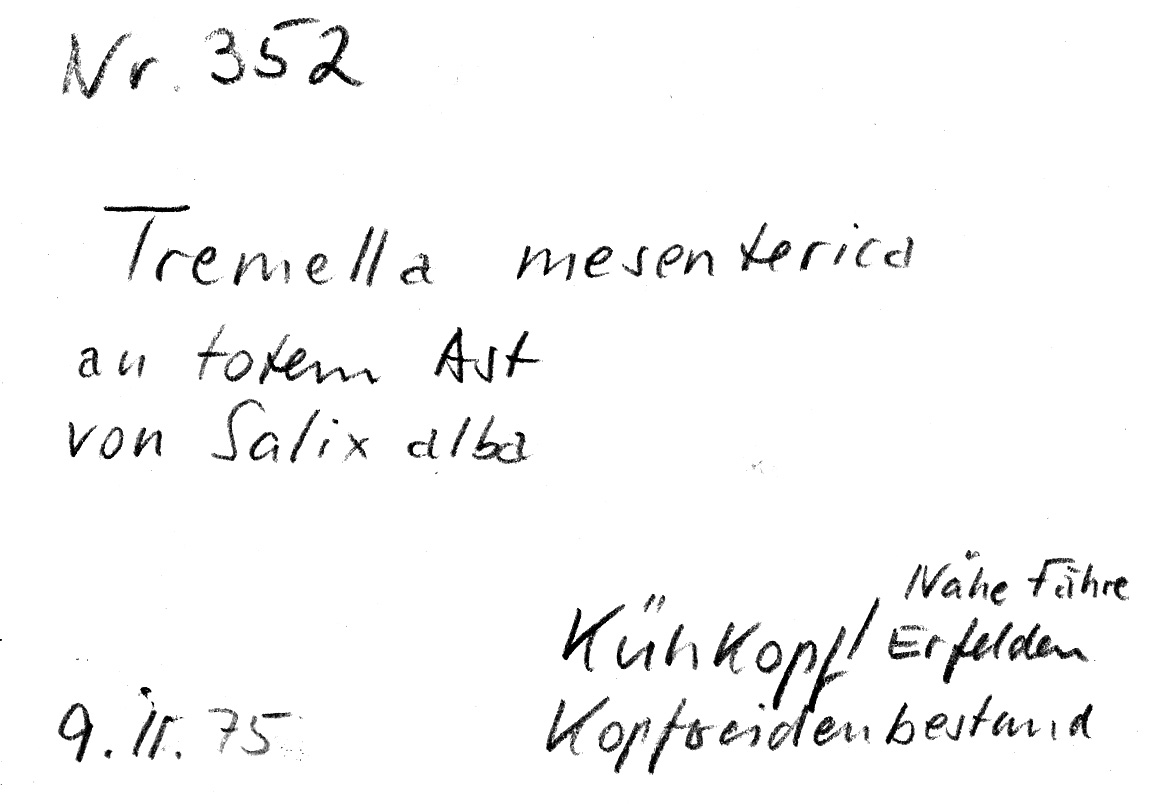 Nr. 352
Tremella mesenterica
an totem Ast
von Salix alba
Nähe Fähre
Kühkopf / Erfelden
9. II. 75
Kopfweidenbestand